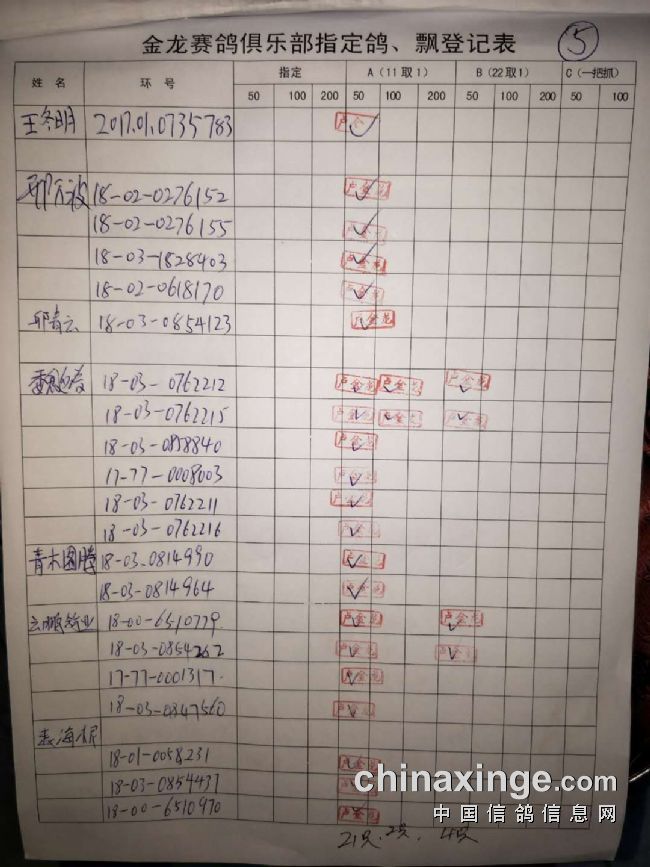 金龙赛鸽俱乐部指定鸽、飘登记表 ⑤
姓名 环号 指定 A(11取1) B(22取1) C(一把抓)
50 100 200 50 100 200 50 100 200 50 100
王冬明 2017.01.0735783 卢金
18-02-0276152
18-02-0276155 卢金
18-03-1828403 卢金龙
18-02-0618170 卢金
青云 18-03-0854123 卢金龙
18-03-0762212 卢金龙 卢金龙 卢金龙
18-03-0762215 卢金龙 卢金龙 卢金龙
18-03-0818840 卢金龙
17-77-0008003 卢金龙
18-03-0762211 卢金龙
18-03-0762216 卢金龙
青木图腾 18-03-0814990
18-03-0814964
云鹏鸽业 18-00-6510779 卢金龙 卢金龙
18-03-0854262 卢金龙 卢金龙
17-77-0001317 卢金龙
18-03-0847560 卢金龙
海
18-01-0058231 卢金龙
18-03-0854437
18-00-6510970 卢金龙
21只.2只. 4只
chinaxinge.com
中国信鸽信息网